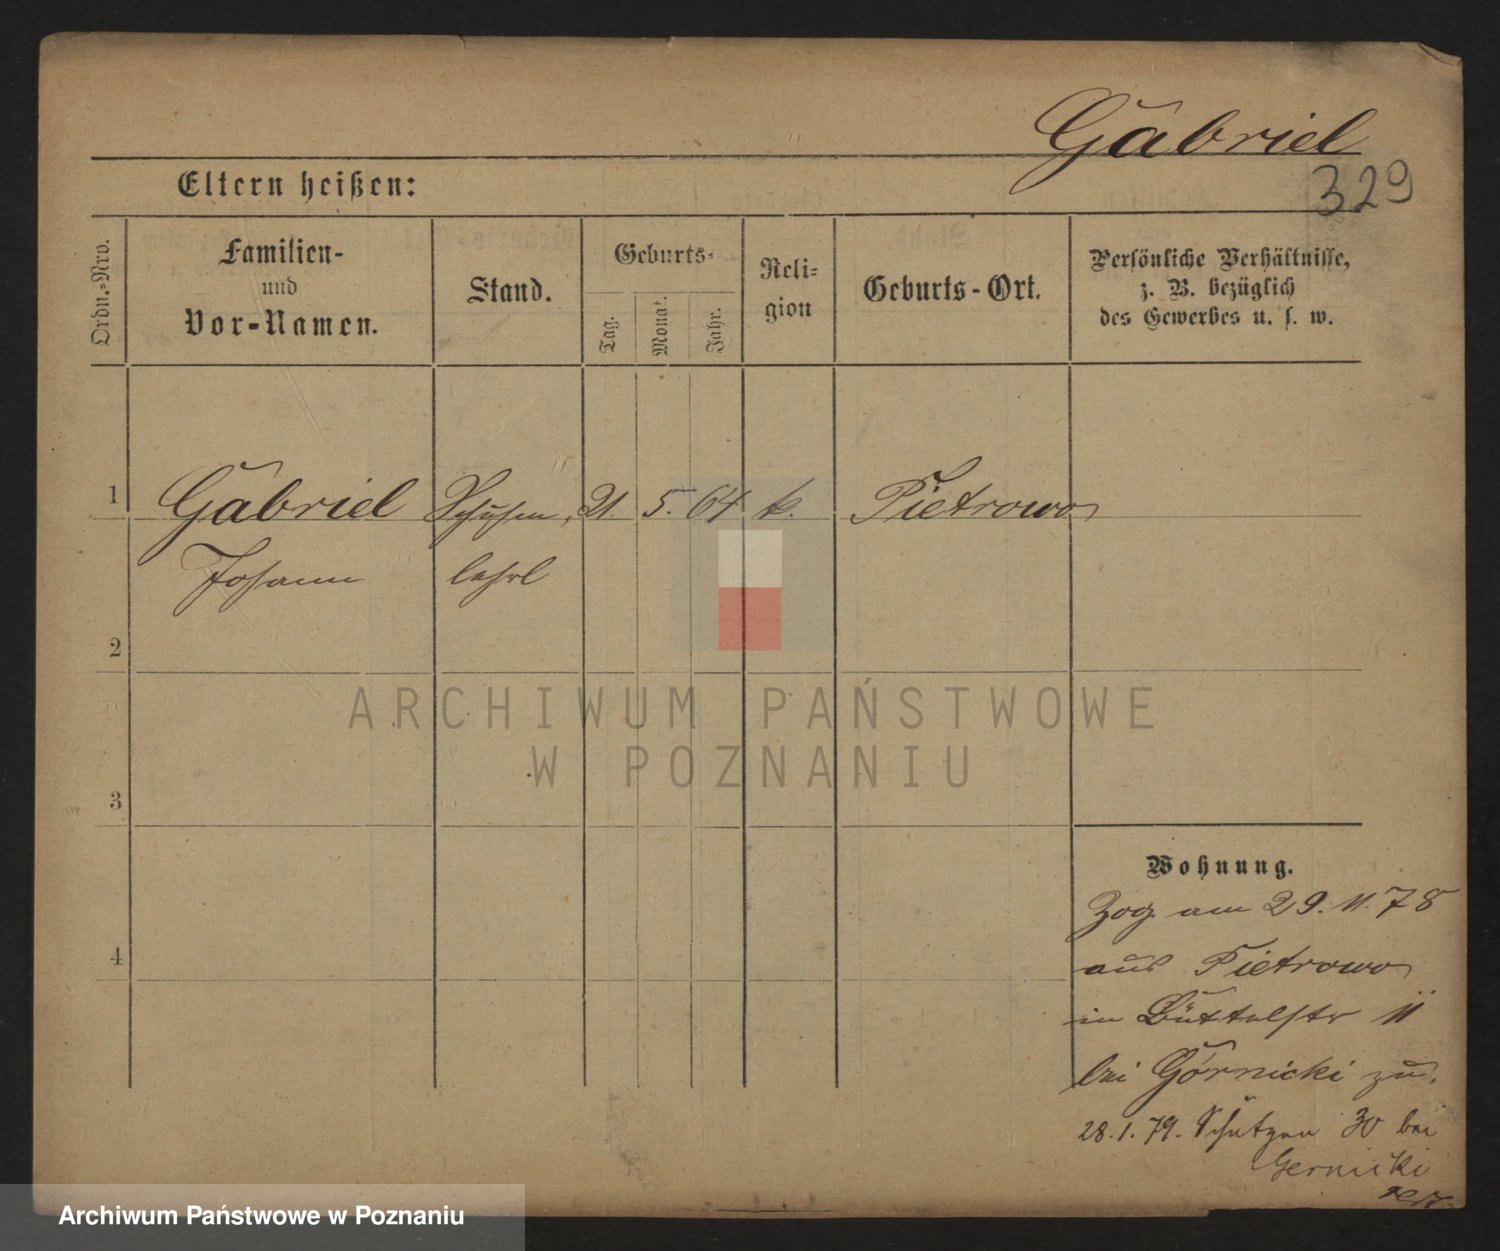 Gabriel
329
Eltern heißen:
Ordn.-Nro.
Familien-
und
Vor-Namen.
Stand.
Geburts-
Tag.
Monat.
Jahr.
Reli-
gion
Geburts-Ort.
Persönliche Verhältnisse,
z. B. bezüglich
des Gewerbes u. s. w.
1 Gabriel 21. 5. 64 k. Pietrowo
Johann lehrl
2
3
4
ARCHIWUM PAŃSTWOWE
W POZNANIU
Wohnung.
Zog am 29. 11. 78
aus Pietrowo
in Büttelstr 11
bei Górnicki zu.
28. 1. 79. Schützen 30 bei
Gernicki
Archiwum Państwowe w Poznaniu